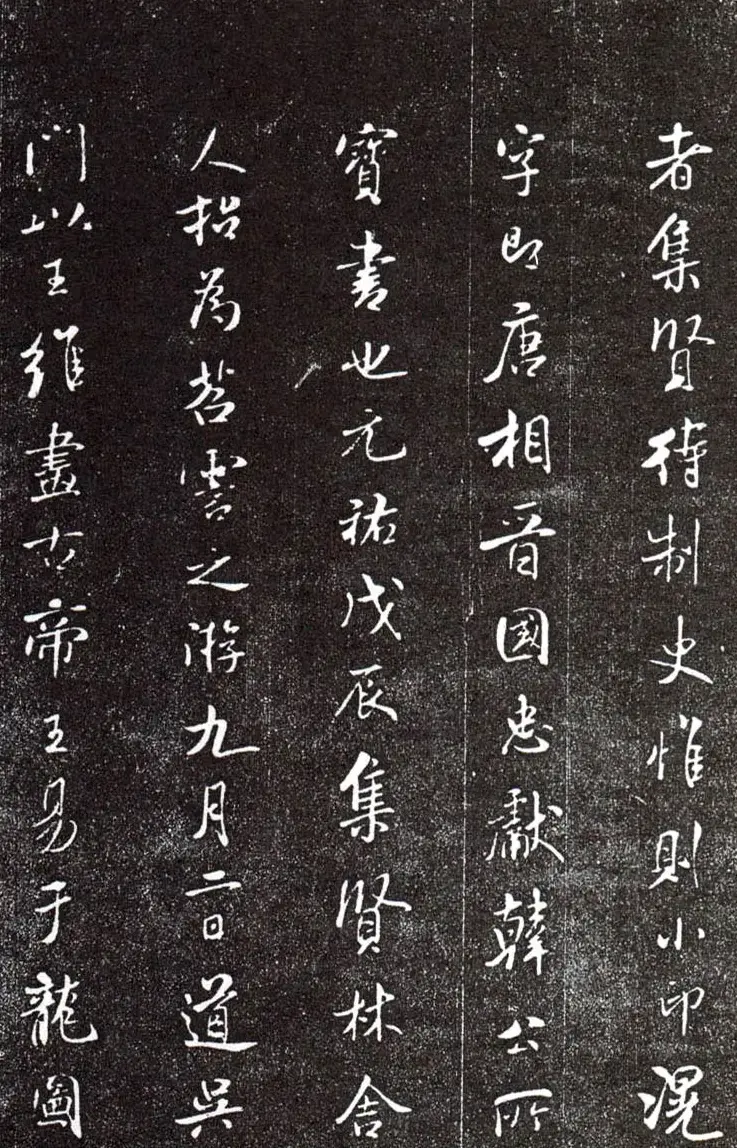 者集賢待制史惟則小印滉
字即唐相晉國忠獻韓公所
寳書也元祐戊辰集賢林舍
人招為苕霅之游九月二日道吳
門以王維畫古帝王易于龍圖